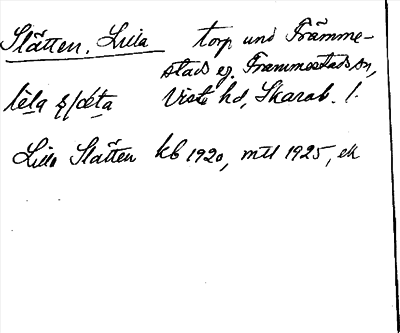 Slätten, Lilla torp und Främme-
stads eg. Frammestads sn,
Viste hd, Skarab. l.
Lilla Slätten kb 1920, mtl 1925, ek